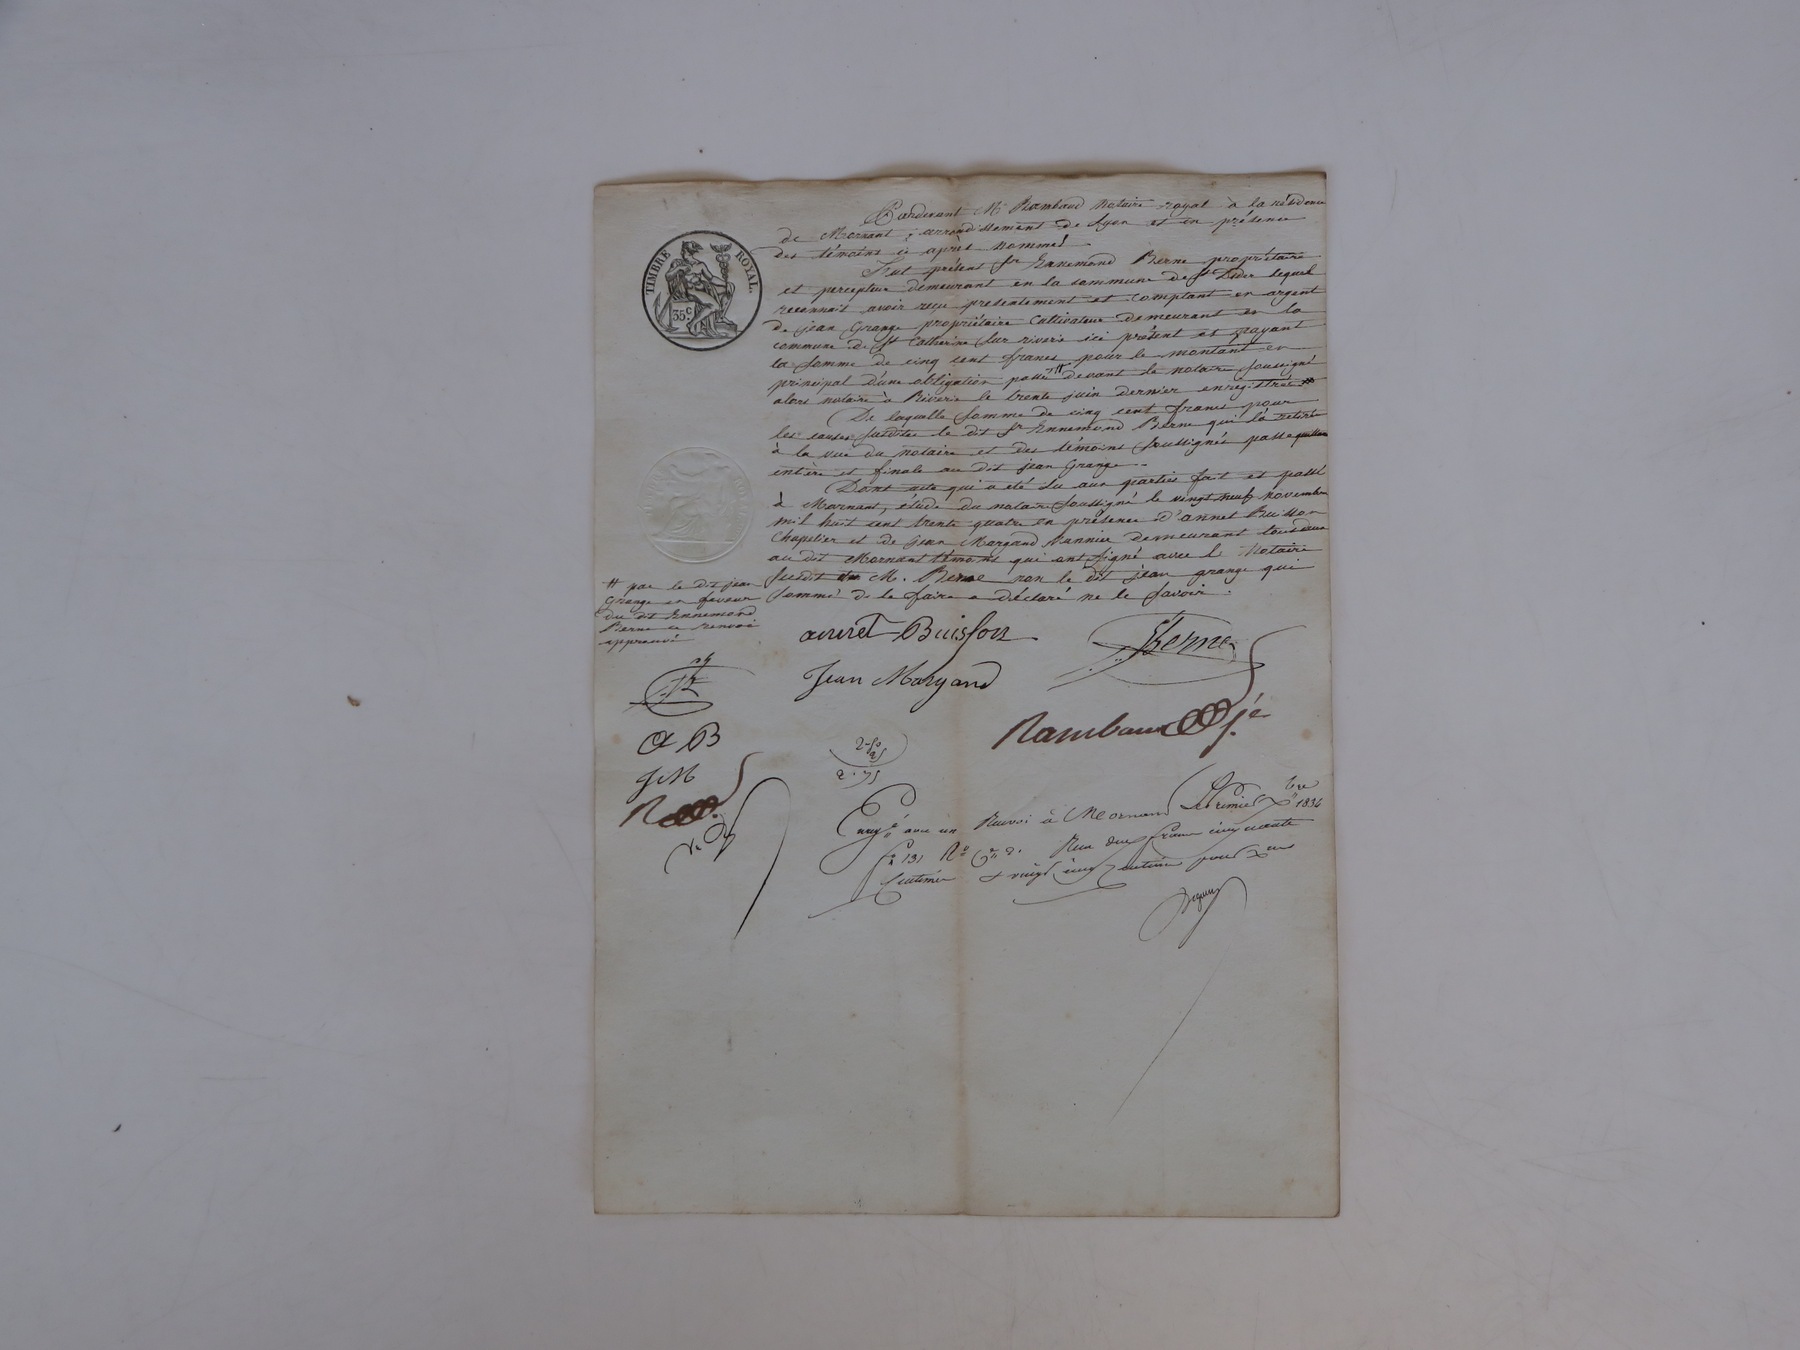 Pardevant Me Rambaud Notaire royal à la résidence
de Mornant, arrondissement de Lyon et en présence
des témoins ci après nommés
Fut présent Sr Ennemond Berne propriétaire
et percepteur demeurant en la commune de St Didier lequel
reconnait avoir reçu présentement et comptant en argent
de jean Grange propriétaire Cultivateur demeurant en la
commune de Ste Catherine sur riverie ici présent et payant
la somme de cinq cent francs pour le montant en
principal d'une obligation passée # devant le notaire soussigné
alors notaire à Riverie le trente juin dernier enregistrée
De laquelle somme de cinq cent francs pour
les causes susdites le dit Sr Ennemond Berne qui l'a retirée
à la vue du notaire et des témoins soussignés passe quittance
entière et finale au dit jean Grange.
Dont acte qui a été lu aux parties fait et passé
à Mornant, étude du notaire soussigné le vingt neuf novembre
mil huit cent trente quatre en présence d'annet Buisson
Chapelier et de jean Margand Vannier demeurant tous deux
au dit Mornant témoins qui ont signé avec le Notaire
susdit M. Berne non le dit jean grange qui
sommé de le faire a déclaré ne le savoir.
# par le dit jean
Grange en faveur
du dit Ennemond
Berne ce renvoi
approuvé
TIMBRE ROYAL.
35c.
annet Buisson
Berne
Jean Margand
Rambaud
AB
JM
R
2-50
25
2.75
Enregé avec un Renvoi à Mornant Le premier Xbre 1834
fo 131 Ro Reçu deux francs cinquante
Centimes & vingt cinq centimes pour